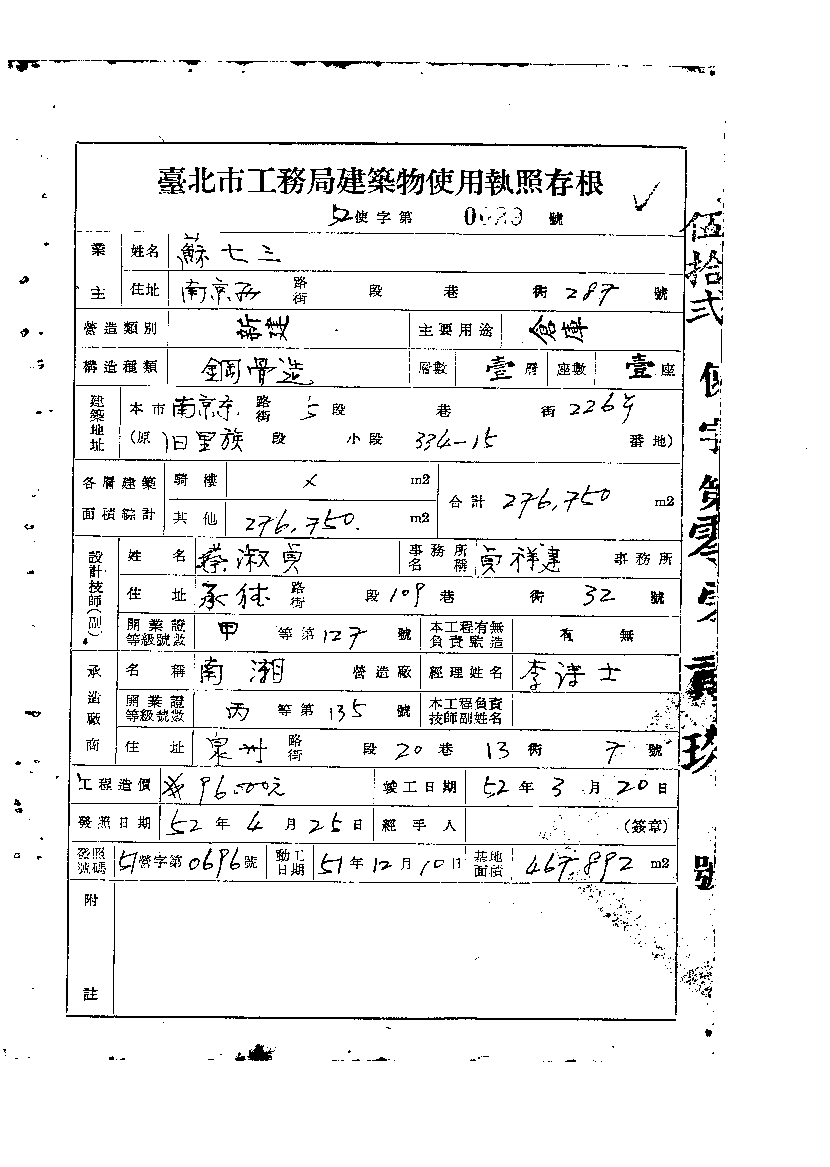 臺北市工務局建築物使用執照存根
52使字第 0029 號
業主 姓名 蘇七三
住址 南京西 路街 段 巷 街 287 號
營造類別 新建 主要用途 倉庫
構造種類 鋼骨造 層數 壹層 座數 壹座
建築地址 本市 南京東 路街 5 段 巷 街 226號
(原 旧里族 段 小段 334-15 番地)
各層建築面積綜計 騎樓 × m2 合計 276.750 m2
其他 276.750. m2
設計技師(副) 姓名 蔡淑貞 事務所名稱 貞祥建 事務所
住址 承德 路街 段 109 巷 街 32 號
開業證等級號數 甲 等第 127 號 本工程有無負責監造 有 無
承造廠商 名稱 南湖 營造廠 經理姓名 李 士
開業證等級號數 丙 等第 135 號 本工程負責技師副姓名
住址 泉州 路街 段 20 巷 13 街 7 號
工程造價 96.000元 竣工日期 52年3月20日
發照日期 52年4月25日 經手人 (簽章)
發照號碼 51營字第0696號 動工日期 51年12月10日 基地面積 467.892 m2
附註
伍拾弍 使字第零零 玖 號